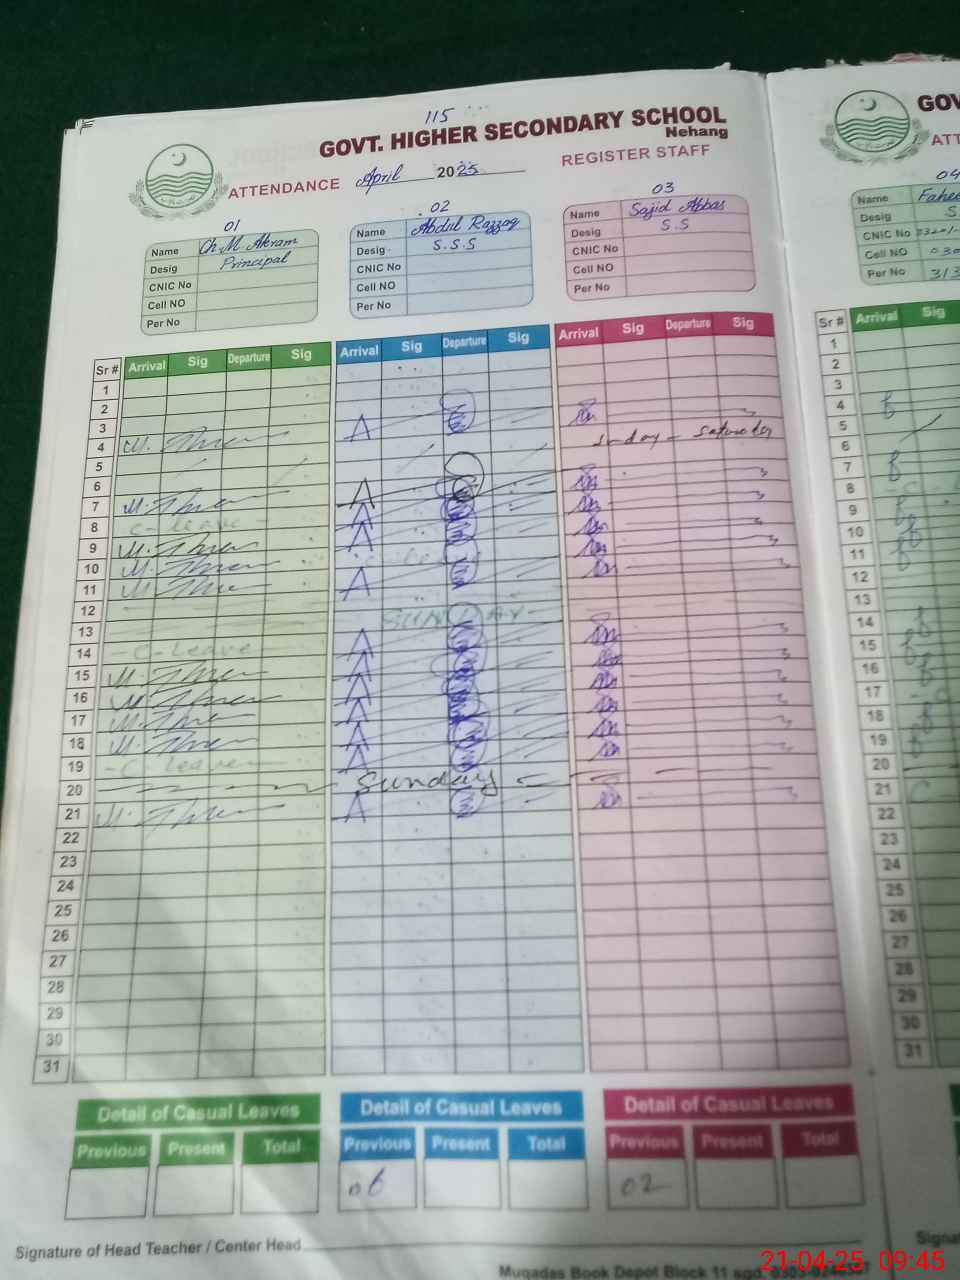 115
GOVT. HIGHER SECONDARY SCHOOL
Nehang
ATTENDANCE April 2025 REGISTER STAFF
01
Name Ch. M. Akram
Desig Principal
CNIC No
Cell NO
Per No
02
Name Abdul Razzaq
Desig S.S.S
CNIC No
Cell NO
Per No
03
Name Sajid Abbas
Desig S.S
CNIC No
Cell NO
Per No
Sr # Arrival Sig Departure Sig Arrival Sig Departure Sig Arrival Sig Departure Sig
1
2
3
4 A
5 Sunday - Saturday
6
7 A
8 C-leave A
9 A
10
11 A
12
13 SUNDAY
14 -C-Leave A
15 A
16 A
17 A
18 A
19 -C-Leave A
20 Sunday
21 A
22
23
24
25
26
27
28
29
30
31
Detail of Casual Leaves
Previous Present Total
Detail of Casual Leaves
Previous Present Total
06
Detail of Casual Leaves
Previous Present Total
02
Signature of Head Teacher / Center Head
Muqadas Book Depot Block 11 sgd.
GOV
ATT
04
Name Fahee
Desig S
CNIC No
Cell NO 030
Per No 313
Sr # Arrival Sig
1
2
3
4
5
6
7
8
9
10
11
12
13
14
15
16
17
18
19
20
21
22
23
24
25
26
27
28
29
30
31
Signa
21-04-25 09:45